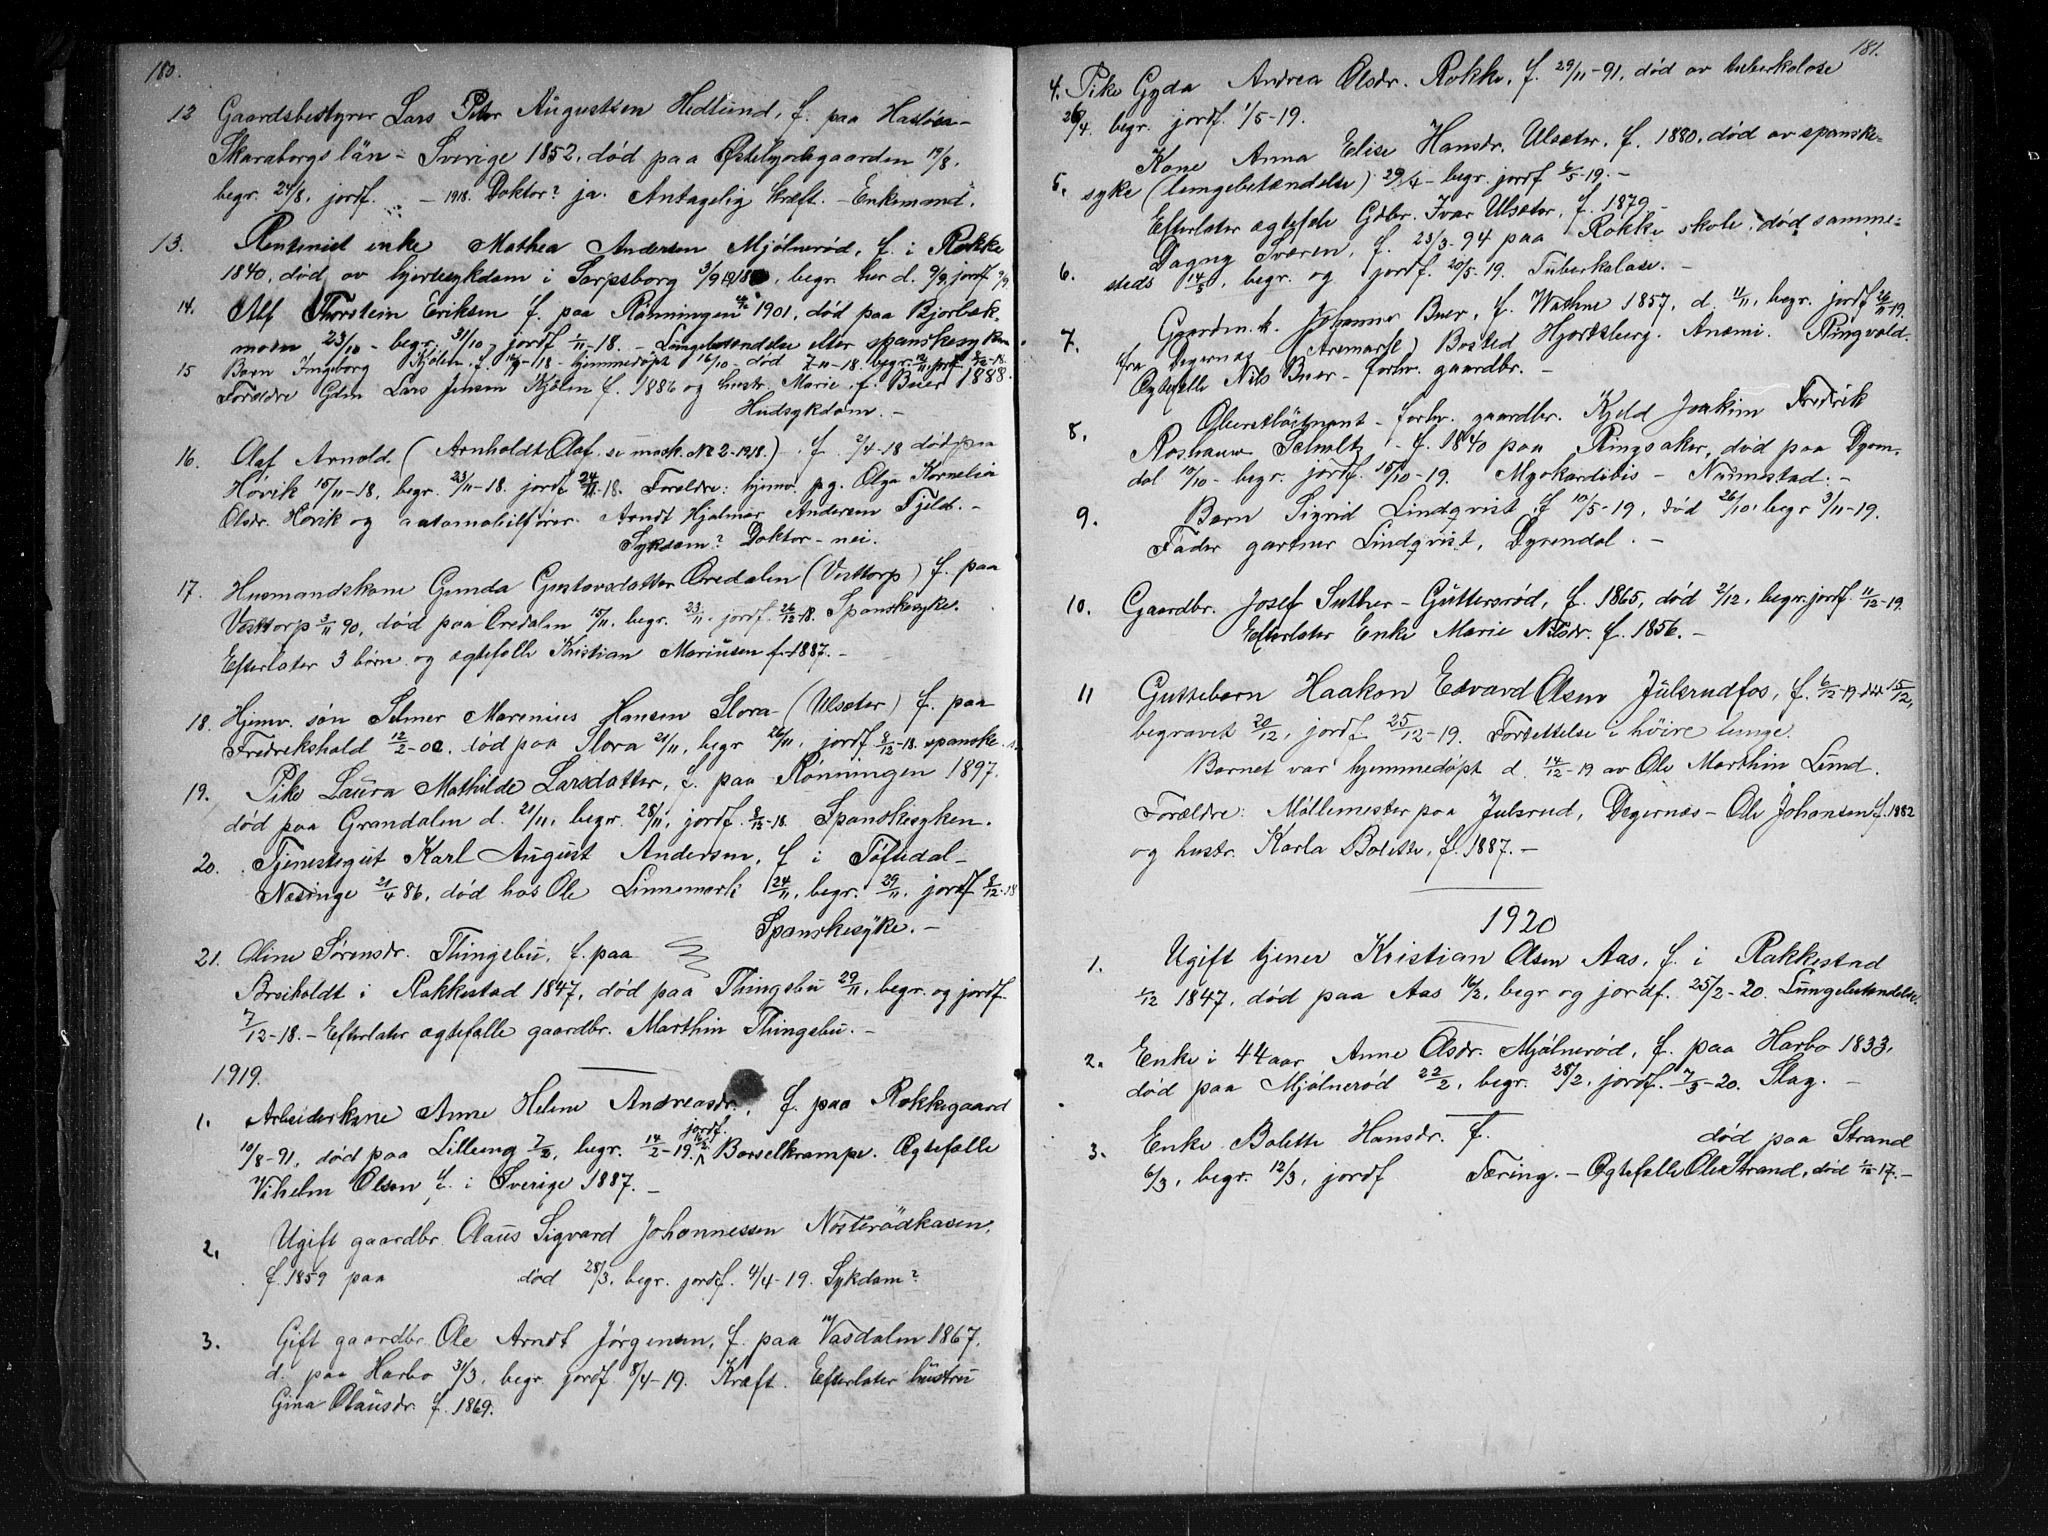 180.
12 Gaardsbestyrer Lars Peter Augustsen Hedlund, f. paa
Skaraborgs län - Sverige 1852, død paa Østebyødegaarden 19/8,
begr. 24/8, jordf. - 1918. Doktor? ja. Antagelig kræft. - Enkemand.
13. Rentenist enke Mathea Andersen Mjølnerød, f. i Rokke
1840, død av hjertesykdom i Sarpsborg 3/9 1918, begr. her d. 9/9, jordf 9/9.
14. Alf Thorstein Eriksen f. paa Rønningen 1901, død paa Bjørbæk-
moen 23/10 - begr. 31/10, jordf 1/11-18. - Lungebetændelse efter spanskesyken.
15 Barn Ingeborg Kjølen f. -18 - hjemmedöpt 16/10 død 7-11-18. begr. 12/11 jordf 8/12-18.
Foreldre Gdm Lars Johan Kjölen f. 1886 og hustr. Marie, f. Beier 1888.
Hudsykdom. -
16. Olaf Arnold (Arnholdt Olaf se mask. No 2-1918) f. 2/4-18 død paa
Høvik 15/11-18, begr. 23/11-18. jordf 24/11-18. Foreldre: hjemv. pg. Olga Kornelia
Olsdr. Høvik og automobilfører. Arndt Hjalmar Andersen Fjeld. -
Sykdom? Doktor - nei.
17. Husmandskone Gunda Gustavsdatter Oredalen (Vesttorp) f. paa
Vesttorp 3/11 90, død paa Oredalen 15/11, begr. 23/11, jordf. 26/12-18. Spanskesyke.
Efterlater 3 børn og ægtefælle Kristian Mariusen f. 1887. -
18. Hjemv. søn Selmer Marenius Hansen Slora (Ulsæter) f. paa
Fredrikshald 12/2-00, død paa Slora 21/11, begr 26/11, jordf 8/12-18. spanske-s.
19. Pike Laura Mathilde Larsdatter, f. paa Rønningen 1897.
død paa Grandalen d. 21/11, begr. 28/11, jordf. 8/12-18. Spanskesyken.
20. Tjenestegut Karl August Andersen, f i Töftedal -
Næsinge 21/4 86, død hos Ole Linnemark 24/11, begr. 29/11, jordf 8/12-18
Spanskesyke. -
21. Oline Sørensdr. Thingsbu, f. paa
Breiholdt i Rakkestad 1847, død paa Thingsbu 29/11, begr. og jordf.
7/12-18. - Efterlater ægtefælle gaardbr. Marthin Thingsbu. -
1919.
1. Arbeiderkone Anne Helene Andreasdr., f. paa Rokkegaard
10/8-91, død paa Lilleeng 7/2, begr. 14/2-19. jordf. Barselkrampe. Ægtefælle
Vilhelm Olsen f. i Sverige 1887. -
2. Ugift gaardbr. Olaus Sigvard Johannessen Nösterödkasen,
f. 1859 paa død 28/3, begr. jordf. 4/4-19. Sykdom?
3. Gift gaardbr. Ole Arndt Jørgensen, f. paa Vasdalen 1867.
d. paa Harbo 31/3, begr. jordf. 8/4-19. Kræft. Efterlater hustru
Gina Olausdr. f. 1869.
181.
4. Pike Gyda Andrea Olsdr. Rokke, f. 29/11-91, død av tuberkolose
26/4. begr. jordf. 1/5-19.
Kone Anna Elise Hansdr. Ulsæter. f. 1880, død av spanske-
5. syke (lungebetændelse) 29/4 - begr. jordf 6/5-19. -
Efterlater ægtefele Gdbr. Ivar Ulsæter, f. 1879 -
Dagny Sværen, f. 23/3-94 paa Rokke skole, død samme-
6. steds 14/5, begr. og jordf. 20/5-19. Tuberkolose. -
Gaardm. k. Johanne Buer, f. Wathne 1857, d. 11/11, begr. jordf 26/11 19.
7. (fra Degernæs Aremark) Bosted Hjortsberg. Anæmi. Ringvold.
Ægtefelle Nils Buer - forhv. gaardbr. -
Oberstløitnant - forhv. gaardbr. Kjeld Joakim Fredrik
8. Roshauw Scholtz - f. 1840 paa Ringsaker, død paa Dyren-
dal 10/10 - begr. jordf. 15/10-19. Myokarditis - Nannestad. -
9. Barn Sigrid Lindqvist f 10/5-19, død 26/10, begr 3/11-19.
Fader gartner Lindqvist, Dyrendal. -
10. Gaardbr. Josef Suther - Guttersrød, f. 1865, død 2/12, begr. jordf. 11/12-19.
Efterlater Enke Marie Nilsdr. f. 1856. -
11 Guttebarn Haakon Edvard Olsen Julsrudfos, f. 6/12-19 død 15/12,
begravet 20/12, jordf 25/12-19. Fortettelse i høire lunge.
Barnet var hjemmedøpt d. 14/12-19 av Ole Marthin Lund.
Forældre: Møllemester paa Julsrud, Degernæs - Ole Johansen f. 1882
og hustr. Karla Bolette, f. 1887. -
1920
1. Ugift tjener Kristian Olsen Aas, f. i Rakkestad
1/12 1847, død paa Aas 16/2, begr og jordf. 25/2-20. Lungebetændelse
2. Enke i 44 aar Anne Olsdr. Mjølnerød, f. paa Harbo 1833,
død paa Mjølnerød 22/2, begr. 28/2, jordf. 7/3-20. Slag. -
3. Enke Bolette Hansdr. f. død paa Strand
6/3, begr. 12/3, jordf Tæring. - Ægtefælle Ole Strand, død -17. -